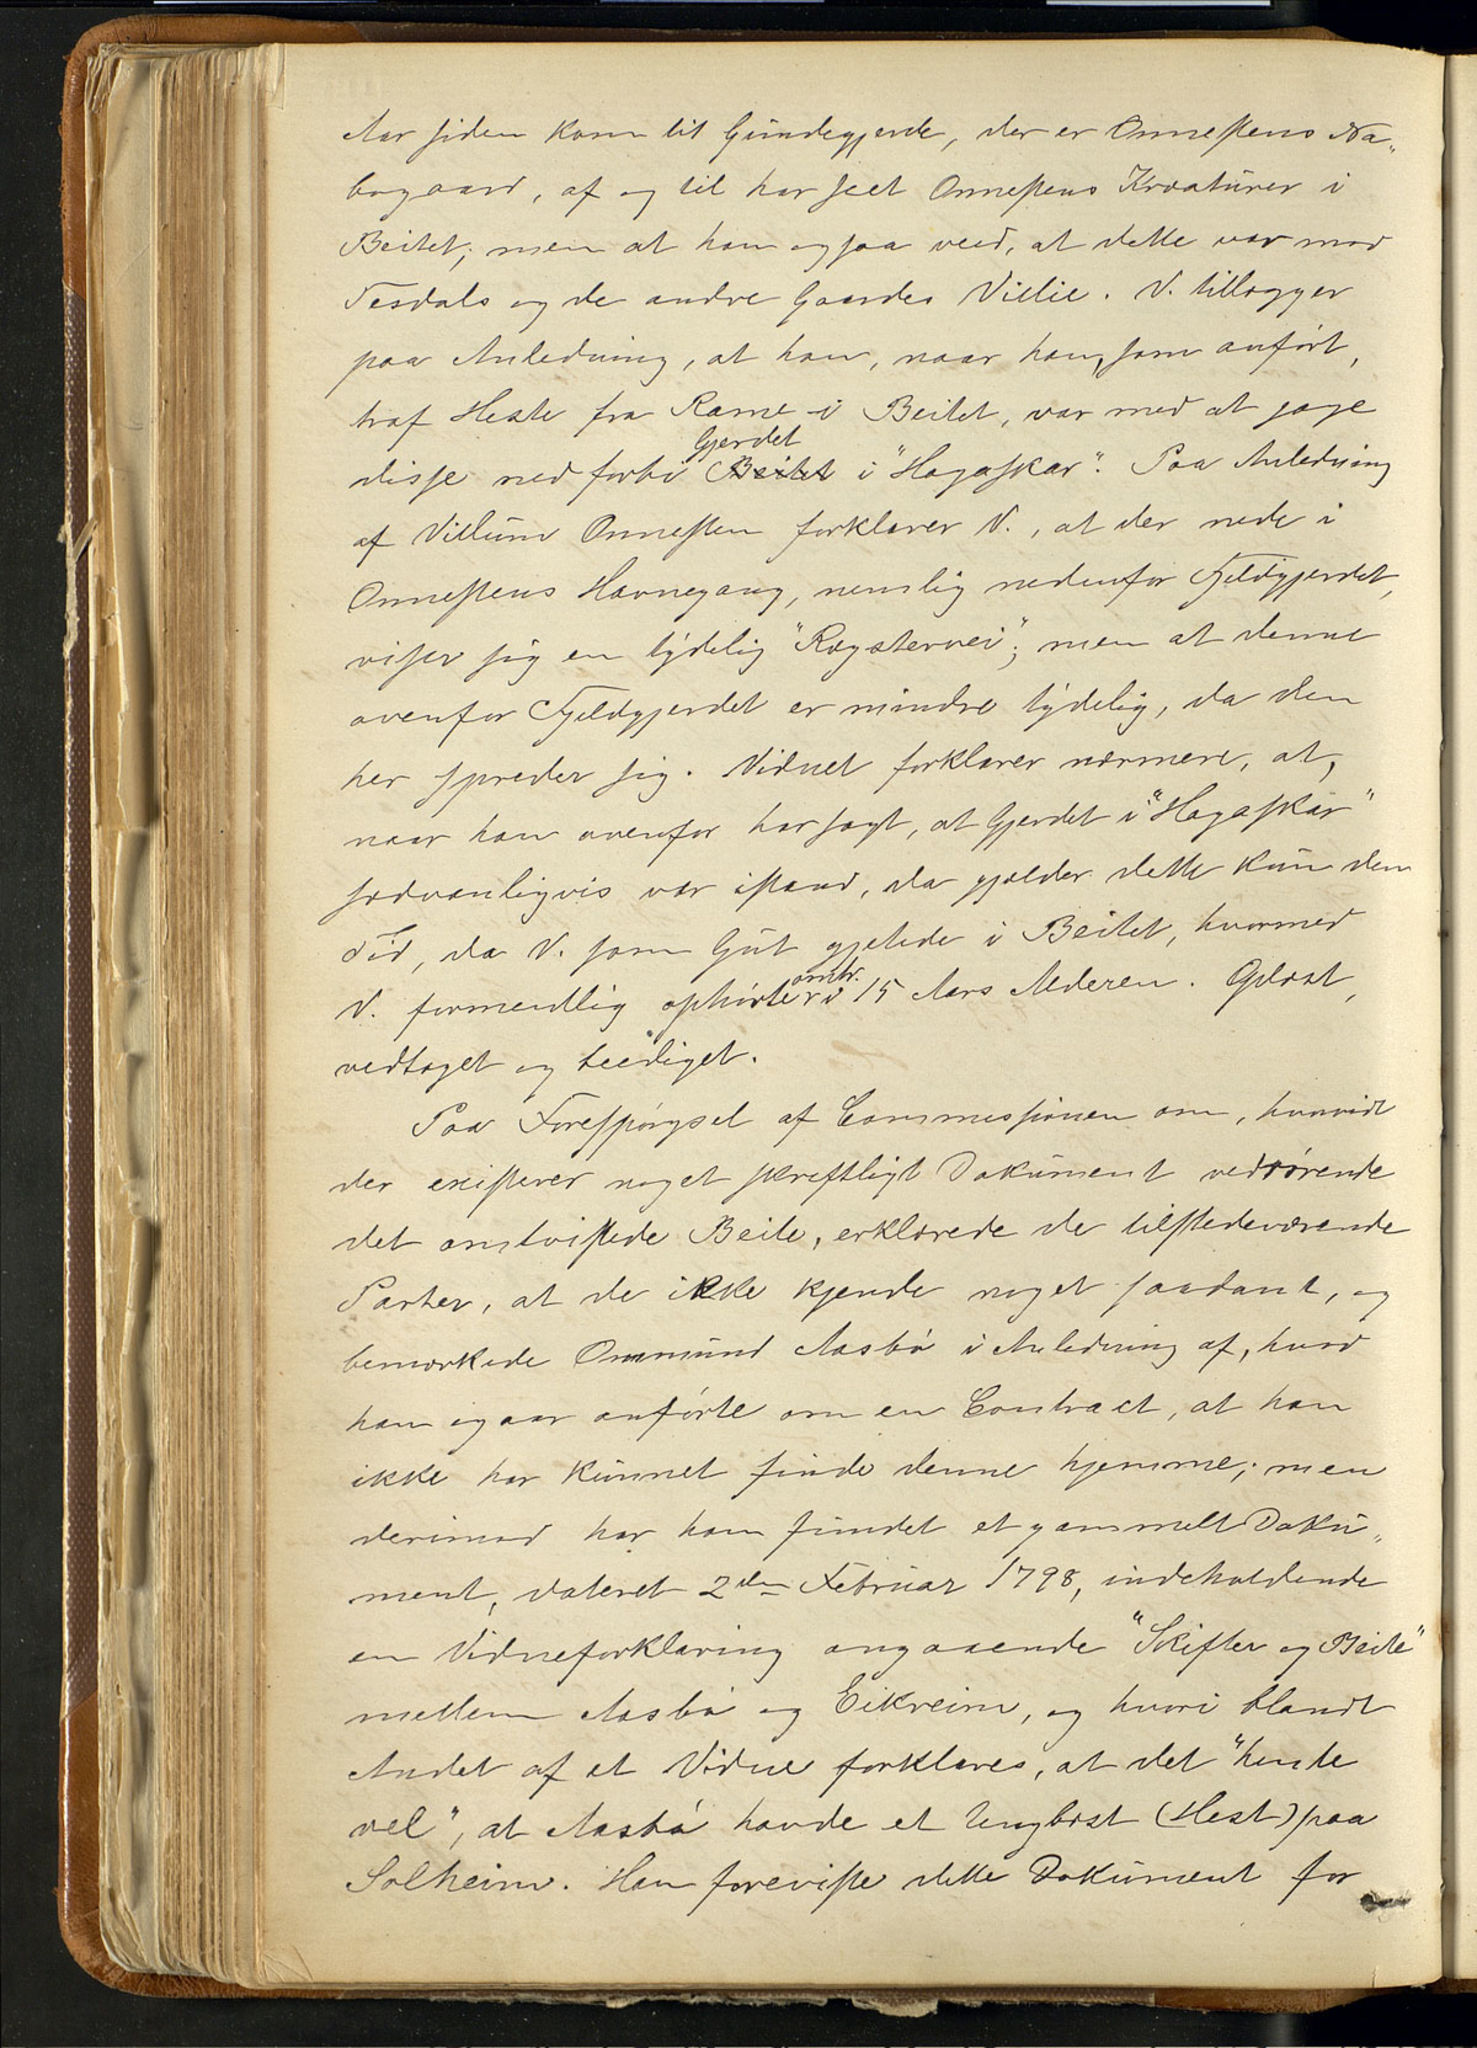 Aar siden kom til Gundegjerde, der er Onnestens Na„
bogaard, af og til har seet Onnestens Kreaturer i
Beitet; men at han ogsaa veed, at dette var mod
Tesdals og de andre Gaardes Villie. V. tillægger
paa Anledning, at han, naar han, som anført,
traf Heste fra Rame i Beitet, var med at jage
disse ned forbi Beitet Gjerdet i "Hagaskar". Paa Anledning
af Villum Onnesten forklarer V., at der nede i
Onnestens Havnegang, nemlig nedenfor Fjeldgjerdet,
viser sig en tydelig "Rægstervei"; men at denne
ovenfor Fjeldgjerdet er mindre tydelig, da den
her spreder sig. Vidnet forklarer nærmere, at,
naar han ovenfor har sagt, at Gjerdet i "Hagaskar"
sædvanligvis var istand, da gjælder dette kun den
Tid, da V. som Gut gjetede i Beitet, hvormed
V. formentlig ophørte omtr. i 15 Aars Alderen. Oplæst,
vedtaget og beediget.
Paa Forespørgsel af Commissionen om, hvorvidt
der existerer noget skreftligt Dokument vedrørende
det omtvistede Beite, erklærede de tilstedeværende
Parter, at de ikke kjende noget saadant, og
bemærkede Ommund Aasbø i Anledning af, hvad
han igaar anførte om en Contract, at han
ikke har kunnet finde denne hjemme; men
derimod har han fundet et gammelt Doku„
ment, dateret 2den Februar 1798, indeholdende
en Vidneforklaring angaaende "Skifter og Beite"
mellem Aasbø og Eikreim, og hvori blandt
Andet af et Vidne forklares, at det "hende
vel", at Aasbø havde et Ungbæst (Hest) paa
Solheim. Han foreviste dette Dokument for